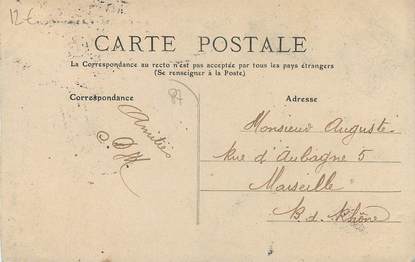 12€
CARTE POSTALE
La Correspondance au recto n'est pas acceptée par tous les pays étrangers
(Se renseigner à la Poste)
Correspondance
Adresse
87
Amitiés
Monsieur Auguste
Rue d'Aubagne 5
Marseille
B. d. Rhône